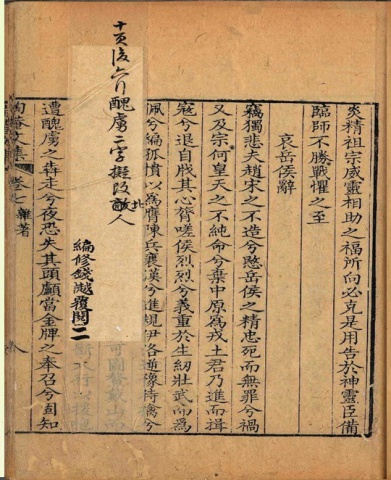 炎精祖宗威靈相助之福所向必克是用告於神靈臣備
臨師不勝戰懼之至
哀岳侯辭
竊獨悲夫趙宋之不造兮愍岳侯之精忠死而無罪兮禍
又及宗何皇天之不純命兮棄中原為戎土君乃進而揖
寇兮退自戕其心膂嗟侯烈烈兮義重於生紉壯武而為
佩兮編孤憤以為膺陳兵襄漢兮進規伊洛逆豫待禽兮
十頁後六行醜虜二字擬改北敵人
編修錢樾覆閱二
遭醜虜之犇走兮夜恐失其頭顱當金牌之奉召兮固知
陶菴文集 卷七 雜著